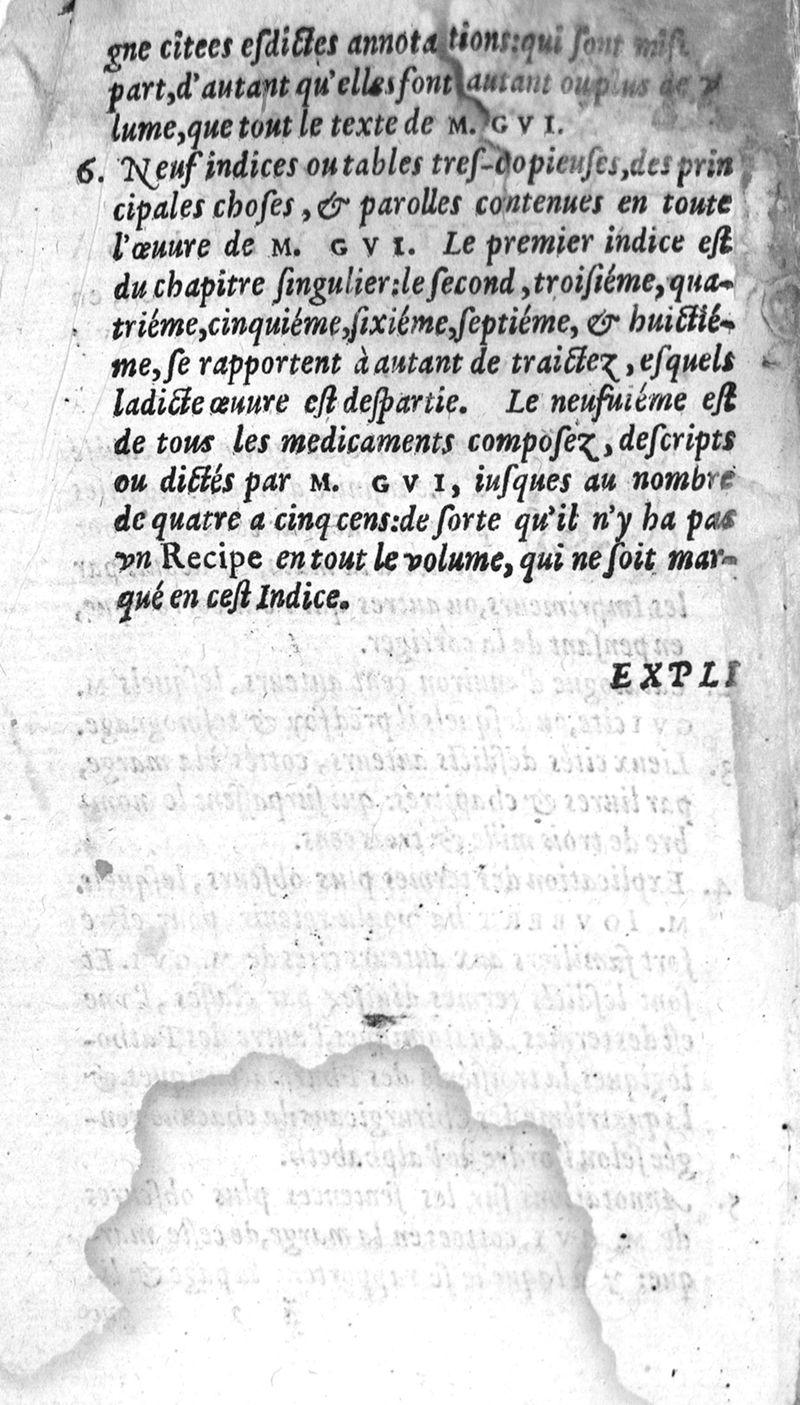 gne citees esdictes annotations:qui sont mis
part,d'autant qu'elles sont autant ou plus de v
lume,que tout le texte de M. GVI.
6. Neuf indices ou tables tres-copieuses,des prin
cipales choses, & parolles contenues en toute
l'œuure de M. GVI. Le premier indice est
du chapitre singulier:le second, troisiéme, qua-
triéme,cinquiéme,sixiéme,septiéme, & huictié-
me, se rapportent à autant de traictez, esquels
ladicte œuure est despartie. Le neufuiéme est
de tous les medicaments composez, descripts
ou dictés par M. GVI, iusques au nombre
de quatre a cinq cens:de sorte qu'il n'y ha pas
vn Recipe en tout le volume, qui ne soit mar-
qué en cest Indice.
EXPLI